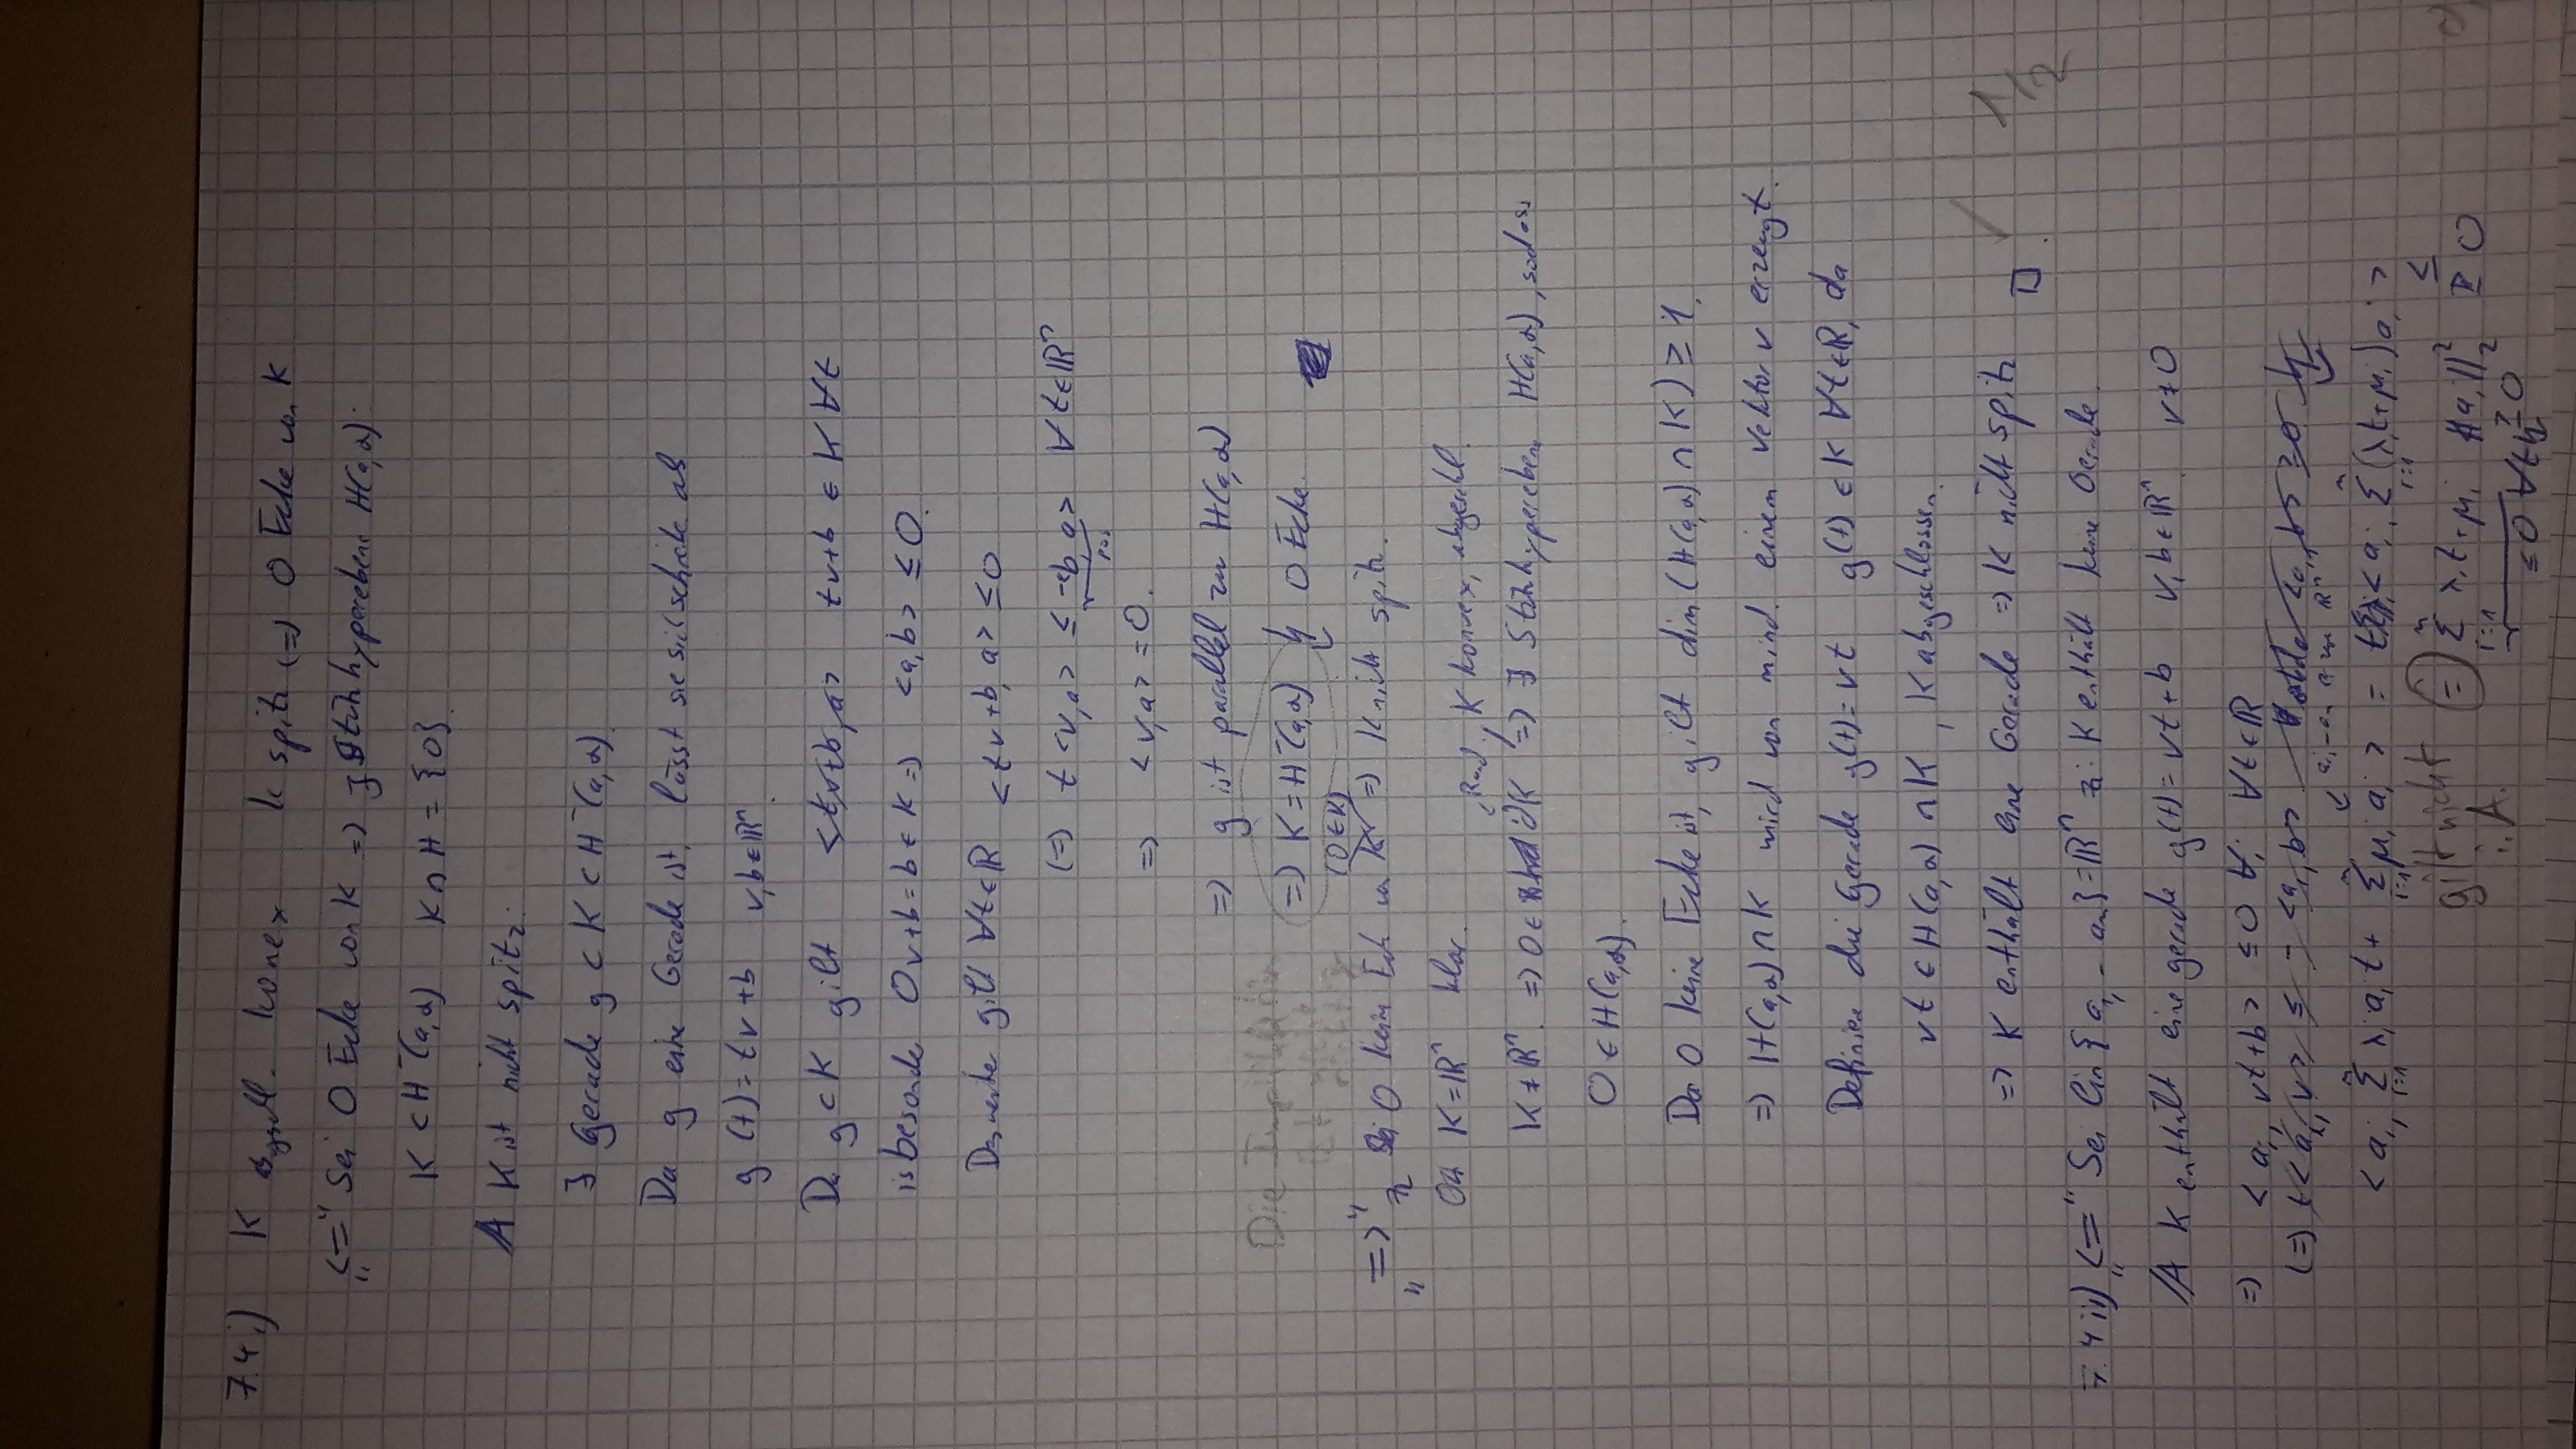 7.4 i) K abgschl. konex K spitz (=) 0 Ecke von K
„<=" Sei 0 Ecke von K => ∃ Stützhyperebene H(a,α):
K ⊂ H⁻(a,α) K ∩ H = {0}.
A K ist nicht spitz:
∃ Gerade g ⊂ K ⊂ H⁻(a,α).
Da g eine Gerade ist, lässt sie sich schreibe als
g(t) = tv + b v,b ∈ ℝⁿ.
Da g ⊂ K gilt <tv+b, a> tv+b ∈ K ∀t
isbesonde 0v+b = b ∈ K => <a,b> ≤ 0.
Desweiter gilt ∀t∈ℝ <tv+b, a> ≤ 0
(=) t<v,a> ≤ -<b,a> ∀t∈ℝⁿ
pos
=> <v,a> = 0.
=> g ist parallel zu H(a,α)
Die Implikation
=> K = H⁻(a,α) ↯ 0 Ecke.
(0∈K)
„=>" zz Sei 0 keine Ecke von K => K nicht spitz.
OA K = ℝⁿ klar.
Rand K konvex, abgeschl.
K ≠ ℝⁿ. => 0 ∈ ∂K => ∃ Stützhyperebene H(a,α), sodass
0 ∈ H(a,α).
Da 0 keine Ecke ist, gilt dim(H(a,α) ∩ K) ≥ 1.
=> H(a,α) ∩ K wird von mind. einem Vektor v erzeugt.
Definiere die Gerade g(t) = vt g(t) ∈ K ∀t∈ℝ, da
vt ∈ H(a,α) ∩ K, K abgeschlossen.
=> K enthält eine Gerade => K nicht spitz □.
1/2
7.4 ii) „<=" Sei lin{a₁, - aₘ} = ℝⁿ z: K enthält keine Gerade.
A K enthält eine gerade g(t) = vt + b v,b ∈ ℝⁿ v ≠ 0
=> <aᵢ, vt+b> ≤ 0 ∀i ∀t∈ℝ
(=) t<aᵢ,v> ≤ - <aᵢ,b>
<aⱼ, Σ λᵢaᵢt + Σ μᵢaᵢ> = <aⱼ, Σ(λᵢt+μᵢ)aᵢ>
gilt nicht (=) Σ λᵢt+μᵢ ||aᵢ||₂² ≤ 0
i.A.
≤0 ∀t ≥0